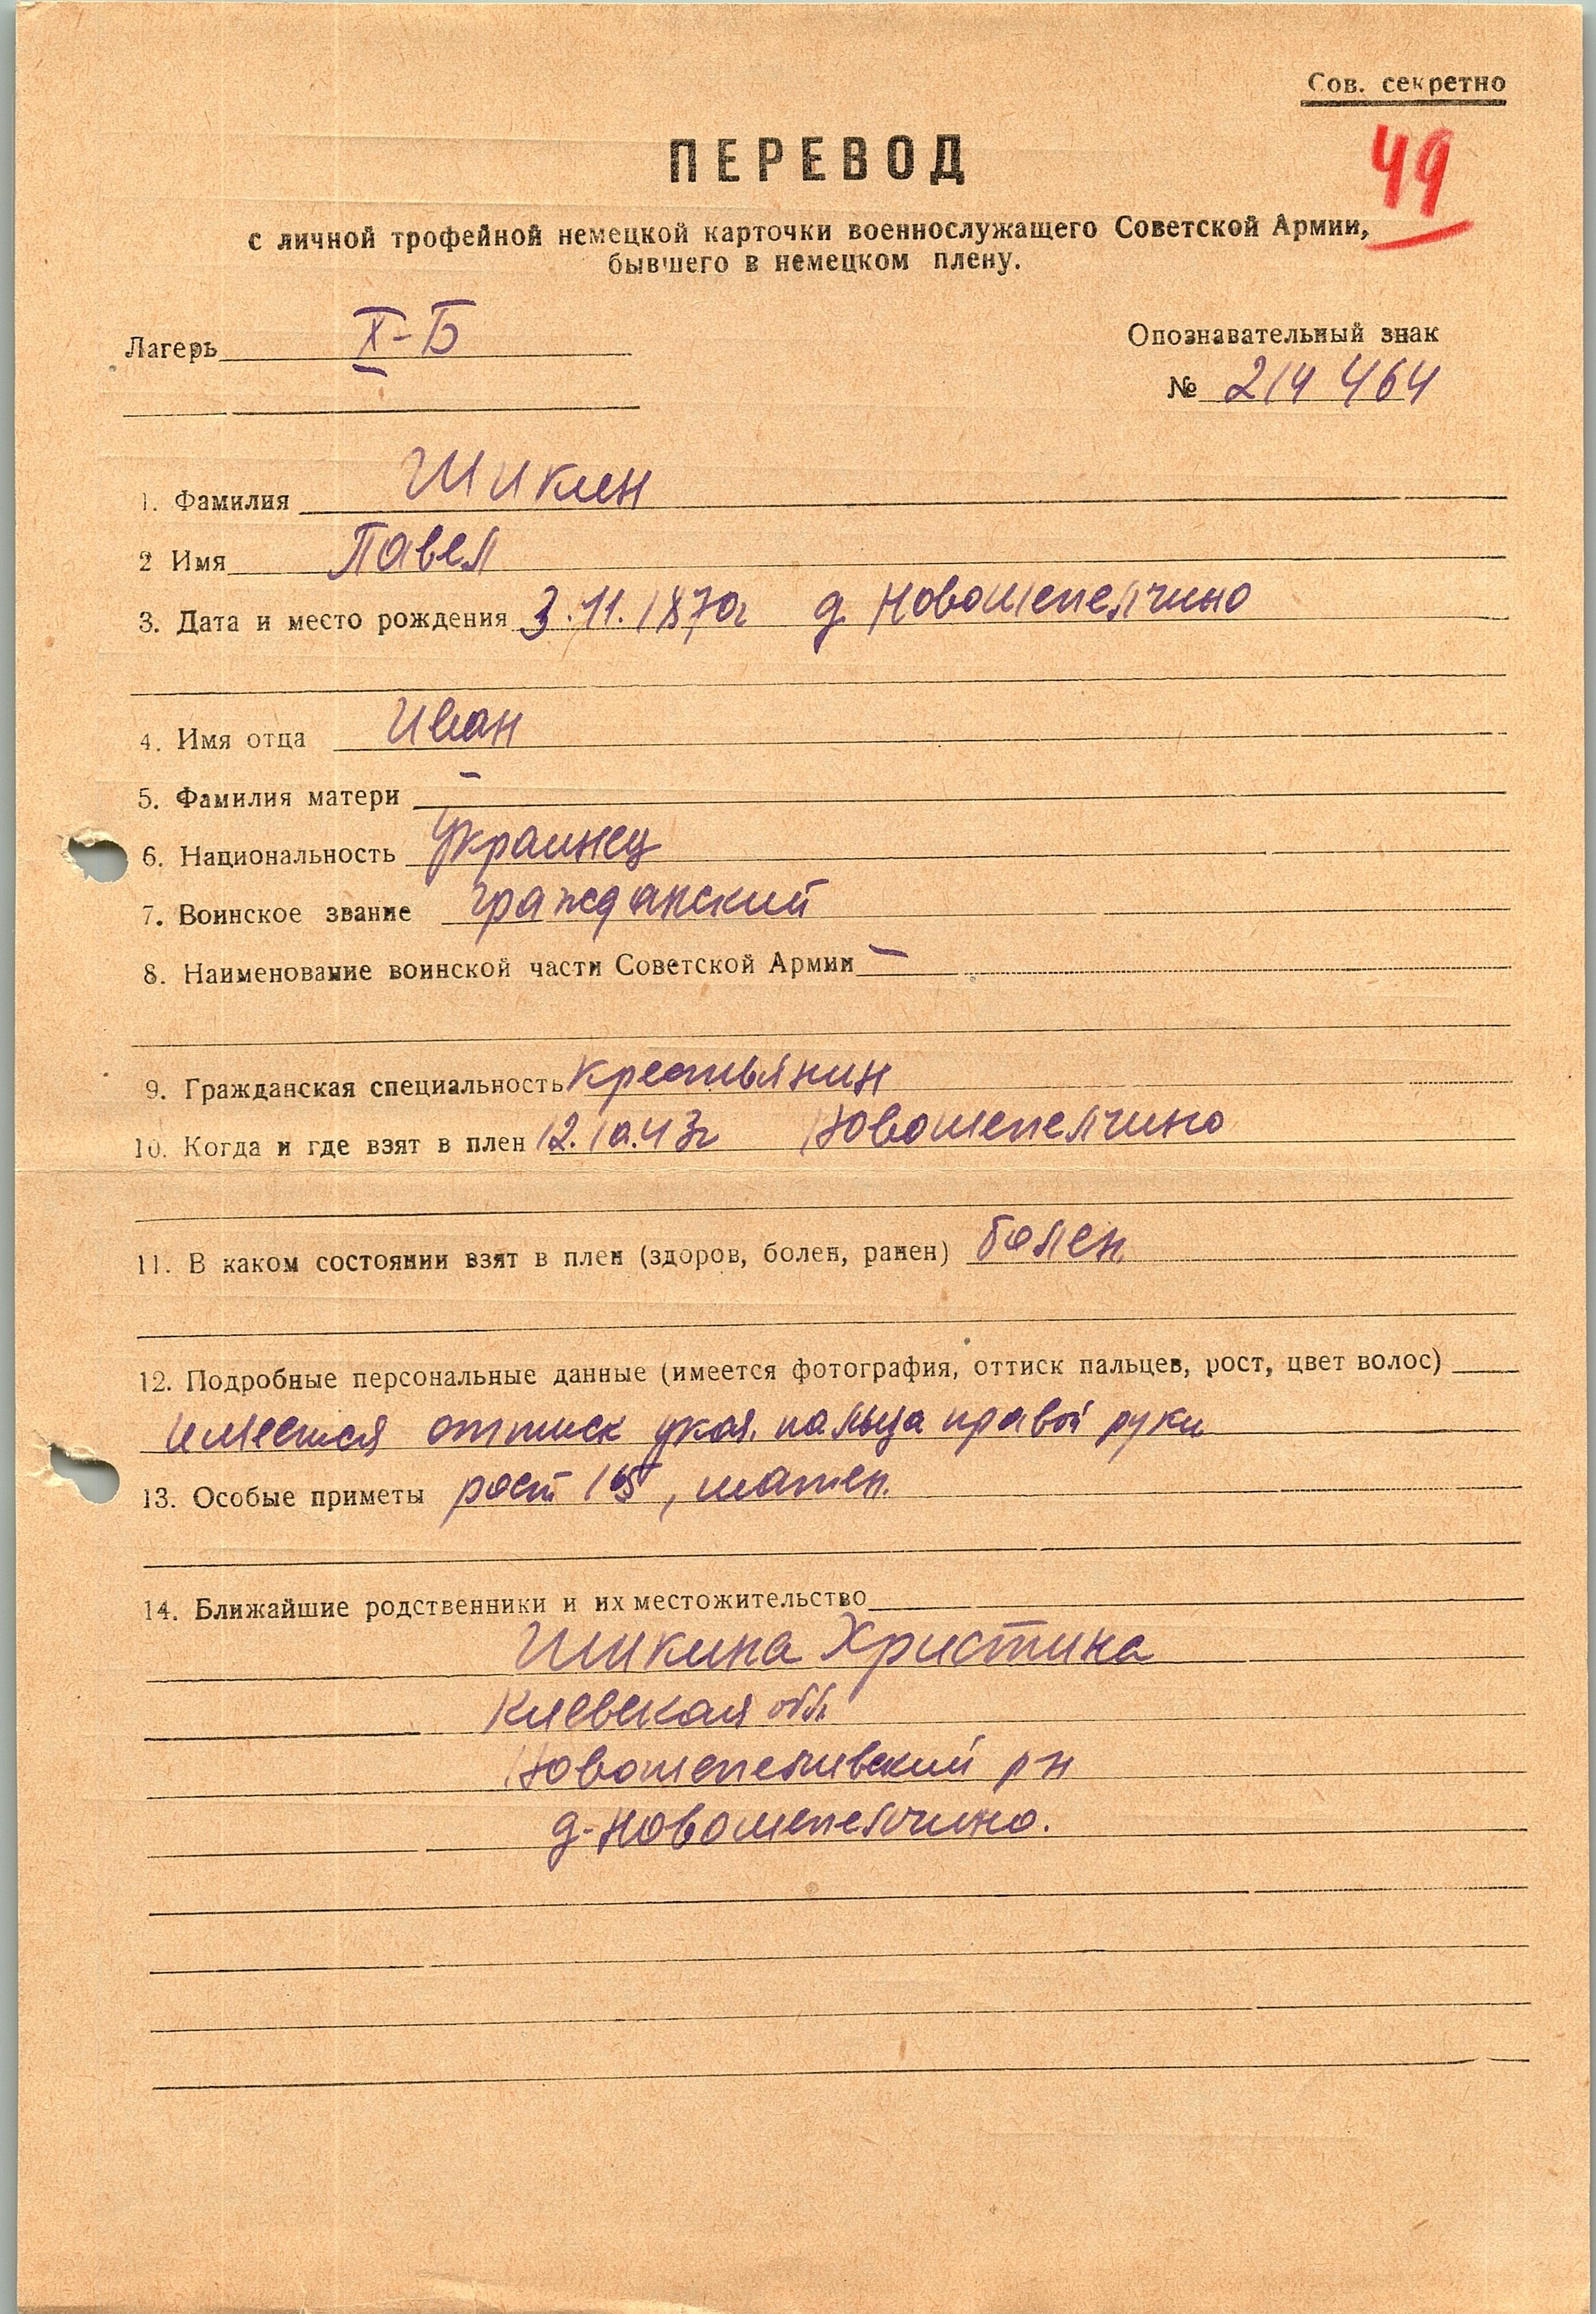 Сов. секретно
49
ПЕРЕВОД
с личной трофейной немецкой карточки военнослужащего Советской Армии,
бывшего в немецком плену.
Лагерь X-Б
Опознавательный знак
№ 214 464
1. Фамилия Шикин
2 Имя Павел
3. Дата и место рождения 3.11.1870г д. Новошепеличино
4. Имя отца Иван
5. Фамилия матери –
6. Национальность Украинец
7. Воинское звание гражданский
8. Наименование воинской части Советской Армии –
9. Гражданская специальность крестьянин
10. Когда и где взят в плен 12.10.43г Новошепелчино
11. В каком состоянии взят в плен (здоров, болен, ранен) болен
12. Подробные персональные данные (имеется фотография, оттиск пальцев, рост, цвет волос)
имеется оттиск указ. пальца правой руки
13. Особые приметы рост 165, шатен.
14. Ближайшие родственники и их местожительство
Шикина Христина
Киевская обл
р-н
д-Новошепелчино.